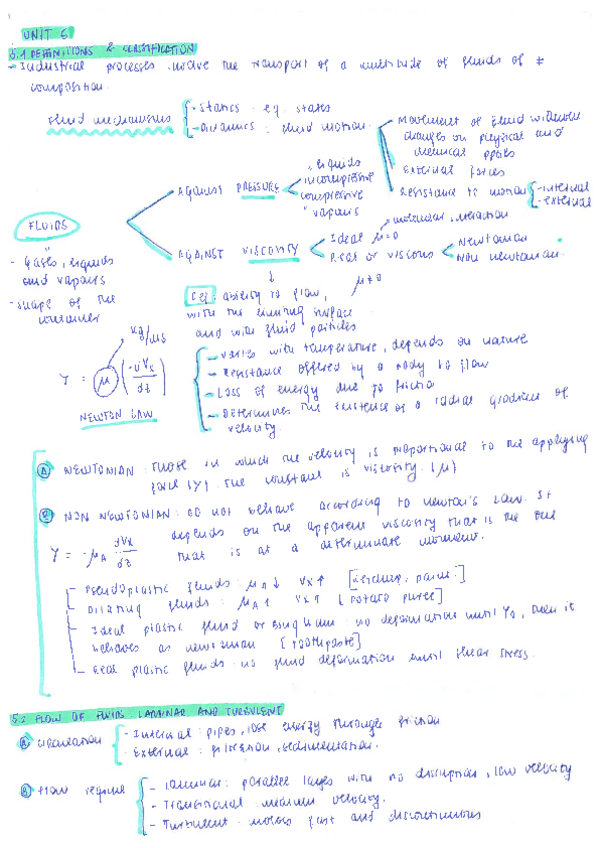 UNIT 5
5.1 DEFINITIONS & CLASSIFICATION
- Industrial processes involve the transport of a multitude of fluids of ≠
composition.
Fluid mechanisms
- Statics : eg. states
- Dinamics : fluid motion.
- Movement of fluid without
changes on physical and
chemical pptes
- External forces
- Resistance to motion
- internal
- external
FLUIDS
- Gases, liquids
and vapours
- shape of the
container
AGAINST PRESSURE
"liquids
incompressive
compressive
"vapours
AGAINST VISCOSITY
molecular interaction
Ideal μ=0
Real or viscous
μ≠0
Newtonian
Non newtonian.
Def. ability to flow,
with the limiting surface
and with fluid particles
- varies with temperature, depends on nature
- Resistance offered by a body to flow
- Loss of energy due to frictio
- Determines the existence of a radial gradient of
velocity.
kg/ms
Υ = μ (-dVx/dz)
NEWTON LAW
A NEWTONIAN : Those in which the velocity is proportional to the applying
force (Υ). The constant is viscosity. (μ)
B NON NEWTONIAN : do not behave according to newton's law. It
depends on the apparent viscosity that is the one
that is at a determinate moment.
Υ = -μA dVx/dz
- Pseudoplastic fluids : μA↓ Vx↑ [ketchup, paint.]
- Dilating fluids : μA↑ Vx↑ [potato puree]
- Ideal plastic fluid or Bingham : no deformation until Υ0, then it
behaves as newtonian [toothpaste]
- Real plastic fluids : no fluid deformation until shear stress.
5.2 FLOW OF FLUIDS LAMINAR AND TURBULENT
A Circulation
- Internal : pipes, lose energy through friction
- External : filtration, sedimentation.
B Flow regime
- Laminar : parallel layers with no disruption, low velocity
- Transitional : medium velocity.
- Turbulent : motion fast and discontinuous